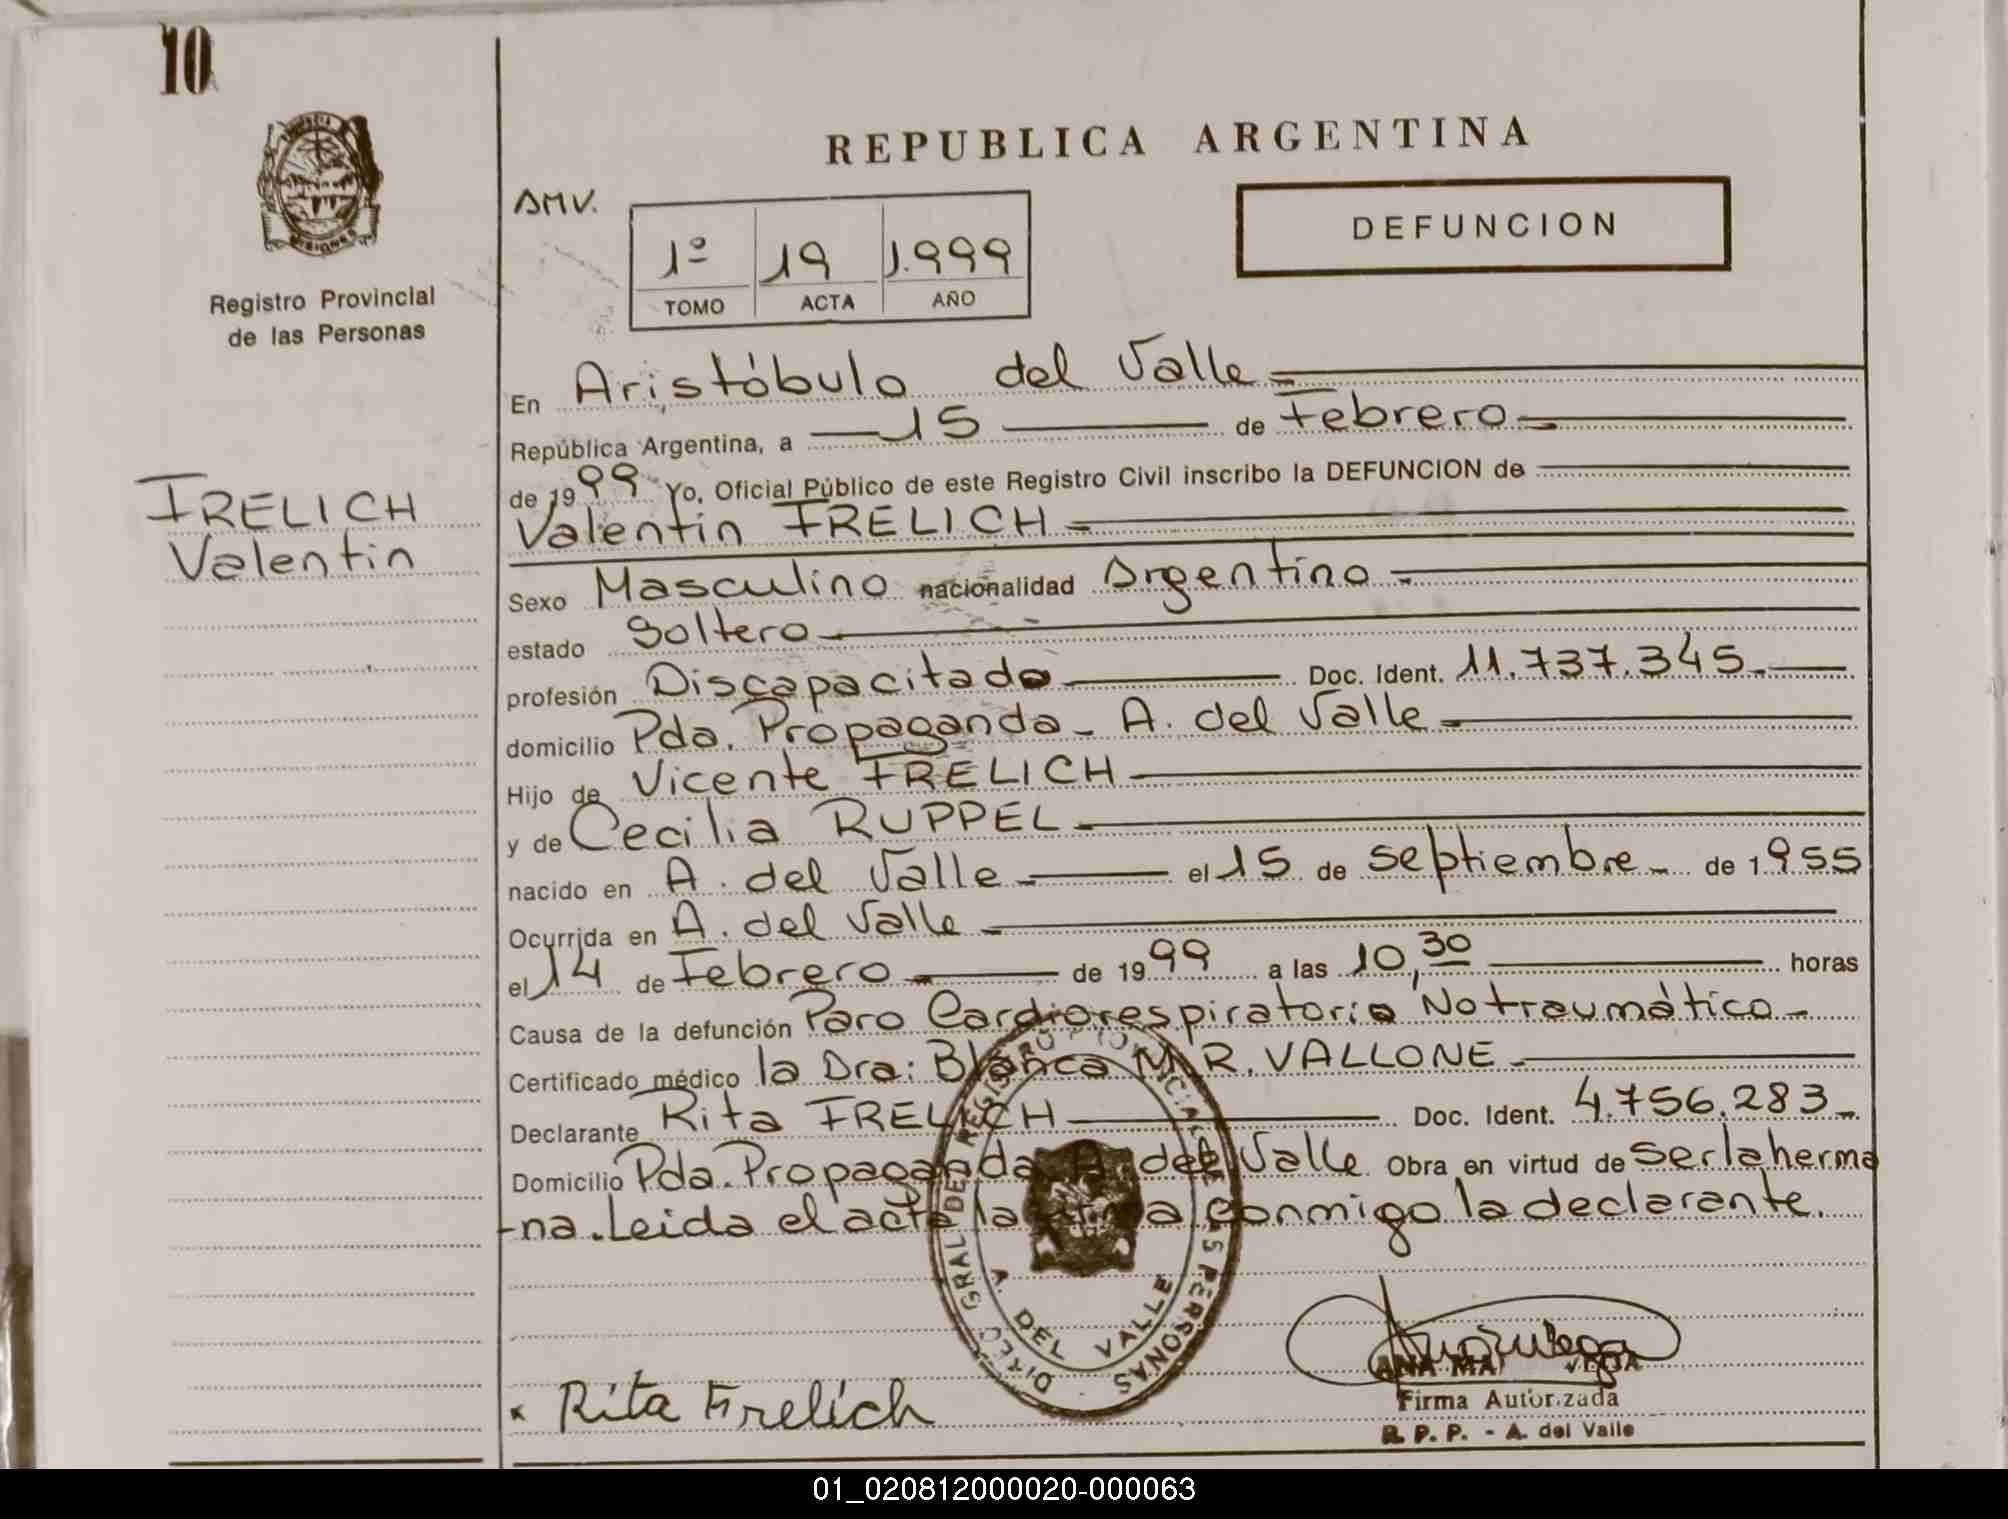 10
MISIONES
Registro Provincial
de las Personas
FRELICH
Valentin
REPUBLICA ARGENTINA
AMV.
1º 19 1.999
TOMO ACTA AÑO
DEFUNCION
En Aristóbulo del Valle
República Argentina, a 15 de Febrero
de 1999 Yo, Oficial Público de este Registro Civil inscribo la DEFUNCION de
Valentin FRELICH
Sexo Masculino nacionalidad Argentino
estado Soltero
profesión Discapacitado Doc. Ident. 11.737.345
domicilio Pda. Propaganda - A. del Valle
Hijo de Vicente FRELICH
y de Cecilia RUPPEL
nacido en A. del Valle el 15 de septiembre de 1955
Ocurrida en A. del Valle
el 14 de Febrero de 1999 a las 10,30 horas
Causa de la defunción Paro Cardiorespiratorio No traumático
Certificado médico la Dra: Blanca M.R. VALLONE
Declarante Rita FRELICH Doc. Ident. 4.756.283
Domicilio Pda. Propaganda A. del Valle Obra en virtud de ser la herma
-na. Leida el acta la firma conmigo la declarante.
DIREC. GRAL DEL REGISTRO PROVINCIAL DE LAS PERSONAS
A. DEL VALLE
x Rita Frelich
ANA MA VEGA
Firma Autorizada
R. P. P. - A. del Valle
01_020812000020-000063